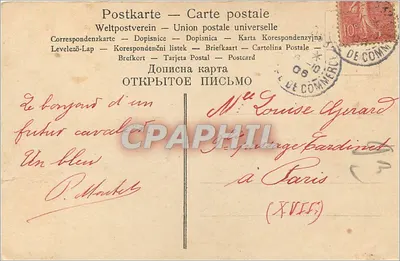 Postkarte — Carte postale
Weltpostverein — Union postale universelle
Correspondenzkarte — Dopisnice — Dopisnica — Karta Korespondenzyjna
Levelező-Lap — Korespondenční lístek — Briefkaart — Cartolina Postale —
Brefkort — Tarjeta Postal — Postcard
Дописна карта
ОТКРЫТОЕ ПИСЬМО
DE COMMERCE
10
06
DE COMMERCE
Le bonjour d'un
futur cavalier
Un bleu
P. Moutet
Melle Louise Gerard
Cardinet
à Paris
(XVII)
CPAPHIL